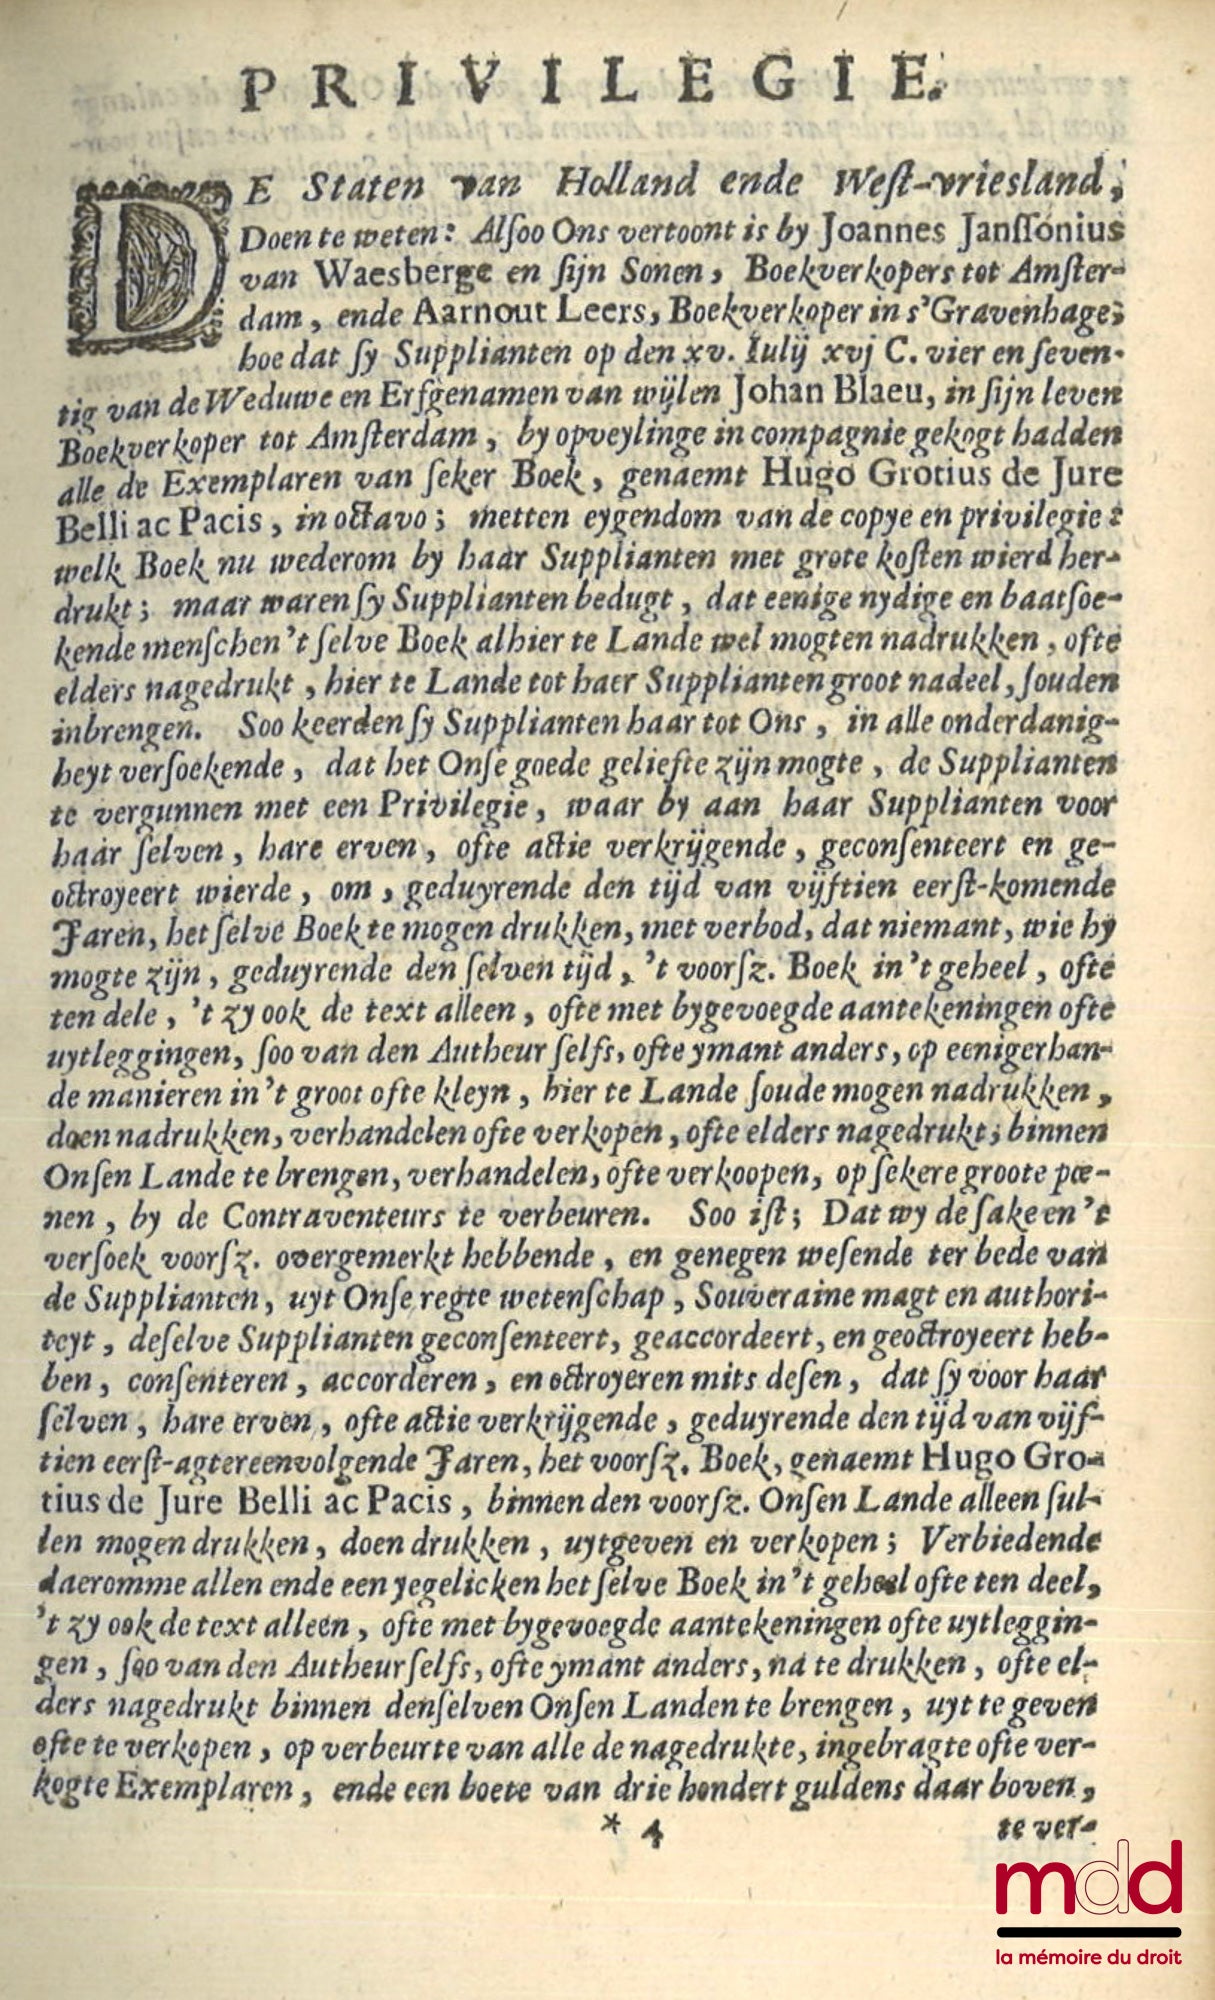 PRIVILEGIE.
DE Staten van Holland ende Weſt-vriesland,
Doen te weten: Alſoo Ons vertoont is by Joannes Janſſonius
van Waesberge en ſijn Sonen, Boekverkopers tot Amſter-
dam, ende Aarnout Leers, Boekverkoper in s'Gravenhage;
hoe dat ſy Supplianten op den xv. Iulij xvj C. vier en ſeven-
tig van de Weduwe en Erfgenamen van wijlen Johan Blaeu, in ſijn leven
Boekverkoper tot Amſterdam, by opveylinge in compagnie gekogt hadden
alle de Exemplaren van ſeker Boek, genaemt Hugo Grotius de Jure
Belli ac Pacis, in octavo; metten eygendom van de copye en privilegie:
welk Boek nu wederom by haar Supplianten met grote koſten wierd her-
drukt; maar waren ſy Supplianten bedugt, dat eenige nydige en baatſoe-
kende menſchen 't ſelve Boek alhier te Lande wel mogten nadrukken, ofte
elders nagedrukt, hier te Lande tot haer Supplianten groot nadeel, ſouden
inbrengen. Soo keerden ſy Supplianten haar tot Ons, in alle onderdanig-
heyt verſoekende, dat het Onſe goede geliefte zijn mogte, de Supplianten
te vergunnen met een Privilegie, waar by aan haar Supplianten voor
haar ſelven, hare erven, ofte actie verkrijgende, geconſenteert en ge-
octroyeert wierde, om, geduyrende den tijd van vijftien eerſt-komende
Jaren, het ſelve Boek te mogen drukken, met verbod, dat niemant, wie hy
mogte zijn, geduyrende den ſelven tijd, 't voorſz. Boek in 't geheel, ofte
ten dele, 't zy ook de text alleen, ofte met bygevoegde aantekeningen ofte
uytleggingen, ſoo van den Autheur ſelfs, ofte ymant anders, op eenigerhan-
de manieren in 't groot ofte kleyn, hier te Lande ſoude mogen nadrukken,
doen nadrukken, verhandelen ofte verkopen, ofte elders nagedrukt; binnen
Onſen Lande te brengen, verhandelen, ofte verkoopen, op ſekere groote pœ-
nen, by de Contraventeurs te verbeuren. Soo iſt; Dat wy de ſake en 't
verſoek voorſz. overgemerkt hebbende, en genegen weſende ter bede van
de Supplianten, uyt Onſe regte wetenſchap, Souveraine magt en authori-
teyt, deſelve Supplianten geconſenteert, geaccordeert, en geoctroyeert heb-
ben, conſenteren, accorderen, en octroyeren mits deſen, dat ſy voor haar
ſelven, hare erven, ofte actie verkrijgende, geduyrende den tijd van vijf-
tien eerſt-agtereenvolgende Jaren, het voorſz. Boek, genaemt Hugo Gro-
tius de Jure Belli ac Pacis, binnen den voorſz. Onſen Lande alleen ſul-
len mogen drukken, doen drukken, uytgeven en verkopen; Verbiedende
daeromme allen ende een yegelicken het ſelve Boek in 't geheel ofte ten deel,
't zy ook de text alleen, ofte met bygevoegde aantekeningen ofte uytleggin-
gen, ſoo van den Autheur ſelfs, ofte ymant anders, na te drukken, ofte el-
ders nagedrukt binnen denſelven Onſen Landen te brengen, uyt te geven
ofte te verkopen, op verbeurte van alle de nagedrukte, ingebragte ofte ver-
kogte Exemplaren, ende een boete van drie hondert guldens daar boven,
* 4 te ver-
mdd
la mémoire du droit